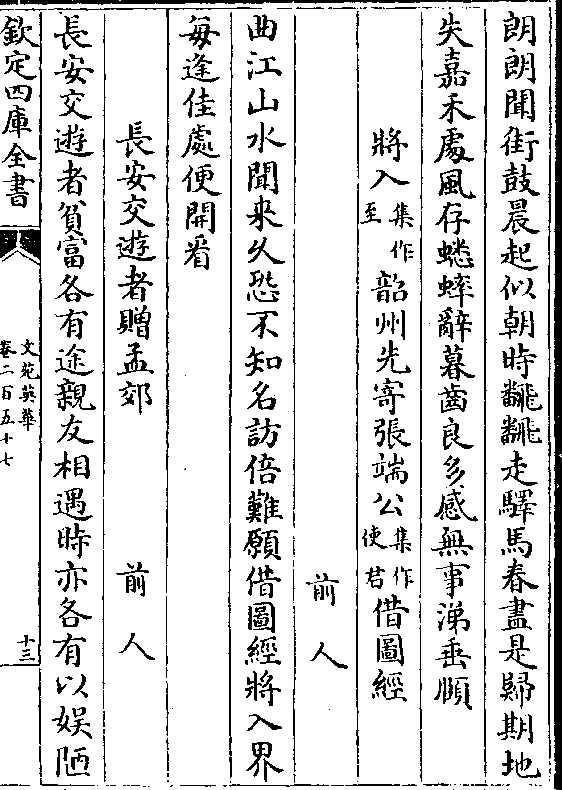 朗朗聞街鼓晨起似朝時飜飜走驛馬春盡是歸期地
失嘉禾處風存蟋蟀辭暮齒良多感無事涕垂頤
將入集作至韶州先寄張端公集作使君借圖經
前人
曲江山水聞來久恐不知名訪倍難願借圖經將入界
每逢佳處便開看
長安交遊者贈孟郊 前人
長安交遊者貧富各有途親友相遇時亦各有以娯陋
欽定四庫全書
文苑英華
卷二百五十七
十三